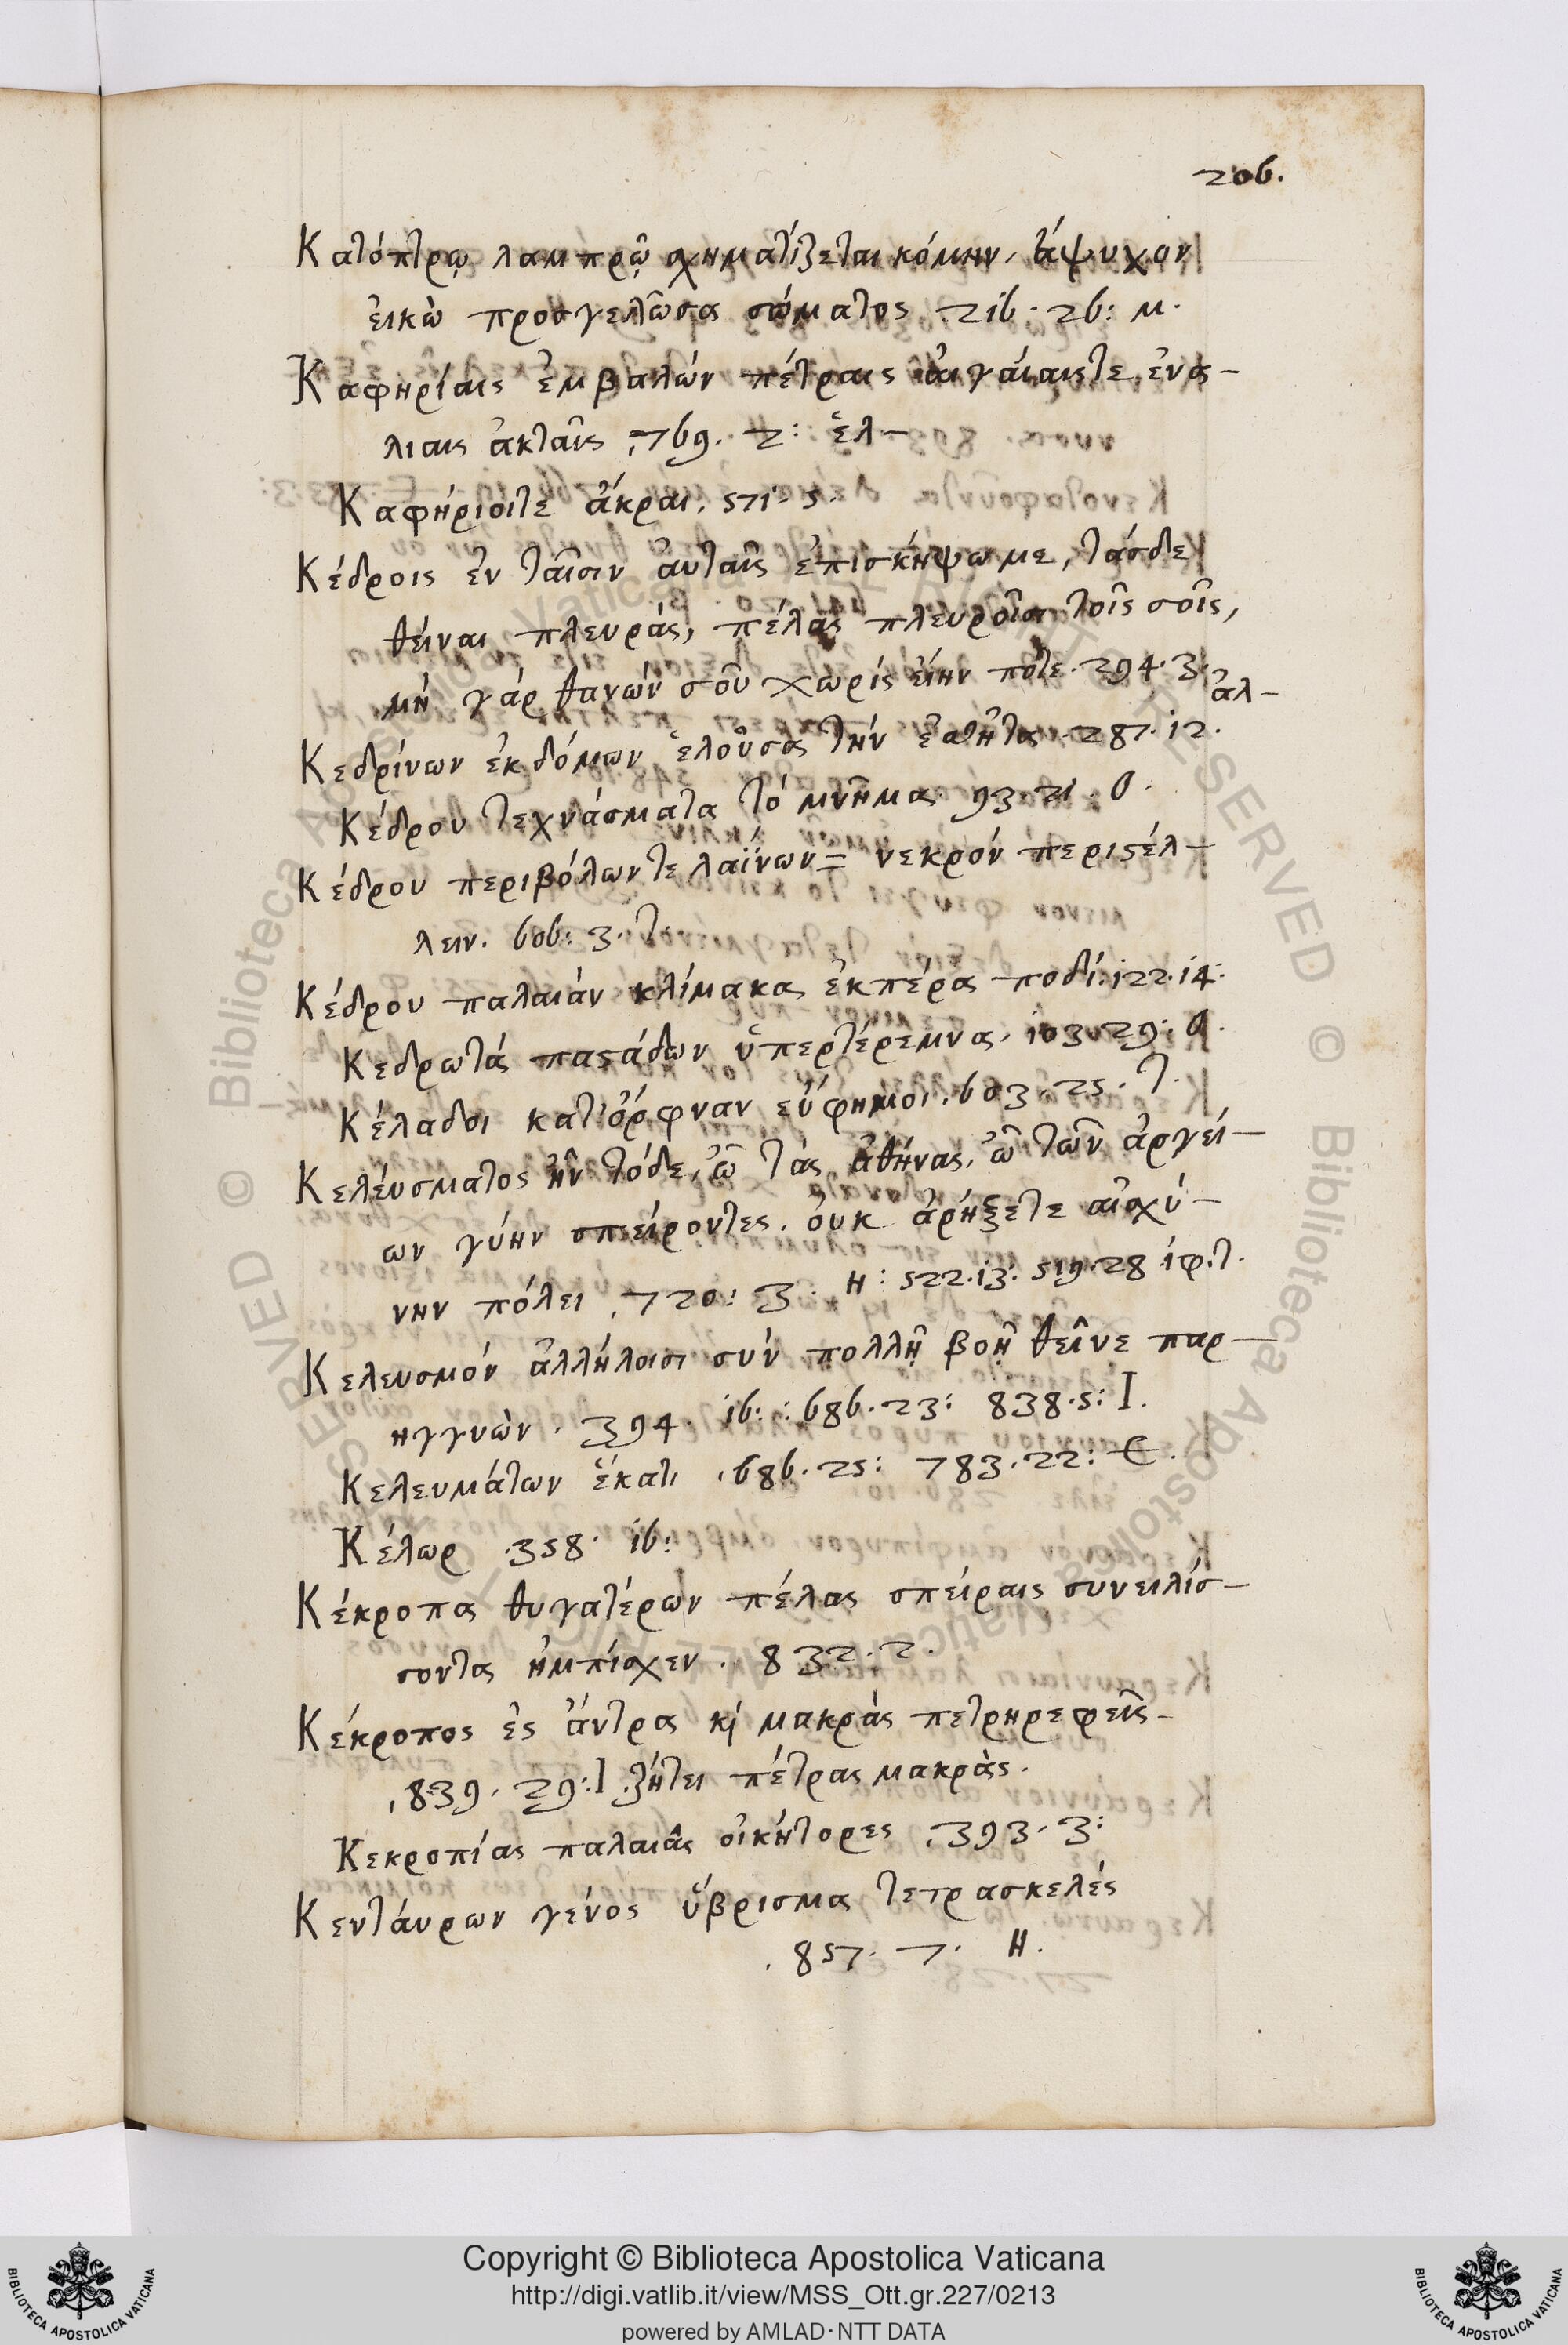 206.
Κατόπτρῳ λαμπρῷ σχηματίζεται κόμην, ἄψυχον
ἐικὼ προσγελῶσα σώματος .216. 26: Μ.
Καφηρίαις ἐμβαλών πέτραις ἀιγάιαιςτε ἐνα-
λιαις ἀκταῖς .769. 2: ἑλ-
Καφήριοιτε ἄκραι. 571. 5.
Κέδροις ἐν ταῖσιν ἀυταῖς ἐπισκήψω με, τάσδε
θέιναι πλευράς, πέλας πλευροῖσι τοῖς σοῖς,
μή γάρ θανών σοῦ χωρίς ἔιην ποτε. 294. 3. ἀλ-
Κεδρίνων ἐκ δόμων ἑλοῦσα τήν ἐσθῆτα. 287. 12.
Κέδρου τεχνάσματα τό μνῆμα 93. 21. ο.
Κέδρου περιβόλωντε λαΐνων = νεκρόν περιςέλ-
λειν. 606: 3. τ.
Κέδρου παλαιάν κλίμακα ἐκπέρα ποδί: 122. 14:
Κεδρωτά παςάδων ὑπερτέρεμνα. 103. 29: ο.
Κέλαδοι κατ' ὄρφναν εὔφημοι. 603. 25. τ.
Κελέυσματος ἦν τόδε, ὦ τάς ἀθήνας, ὦ τῶν ἀργεί-
ων γύην σπείροντες, ὀυκ ἀρήξετε αἰσχύ-
νην πόλει .720: 3. Η: 522. 13. 519. 28 ἰφ. τ.
Κελευσμόν ἀλλήλοισι σύν πολλῇ βοῇ θεῖνε παρ-
ηγγυὼν. 394. 16: :686. 23: 838. 5: Ι.
Κελευμάτων ἕκατι .686. 25: 783. 22: Ε.
Κέλωρ .358. 16:
Κέκροπα θυγατέρων πέλας σπείραις συνειλίσ-
σοντα ἠμπίσχεν .. 832. 2.
Κέκροπος ἐς ἄντρα κ̀ μακράς πετρηρεφεῖς-
.839. 29: Ι. ζήτει πέτρας μακρὰς.
Κεκροπίας παλαιᾶς οἰκήτορες .393. 3:
Κεντάυρων γένος ὕβρισμα τετρασκελές
.857. 7. Η.
Copyright © Biblioteca Apostolica Vaticana
http://digi.vatlib.it/view/MSS_Ott.gr.227/0213
powered by AMLAD·NTT DATA